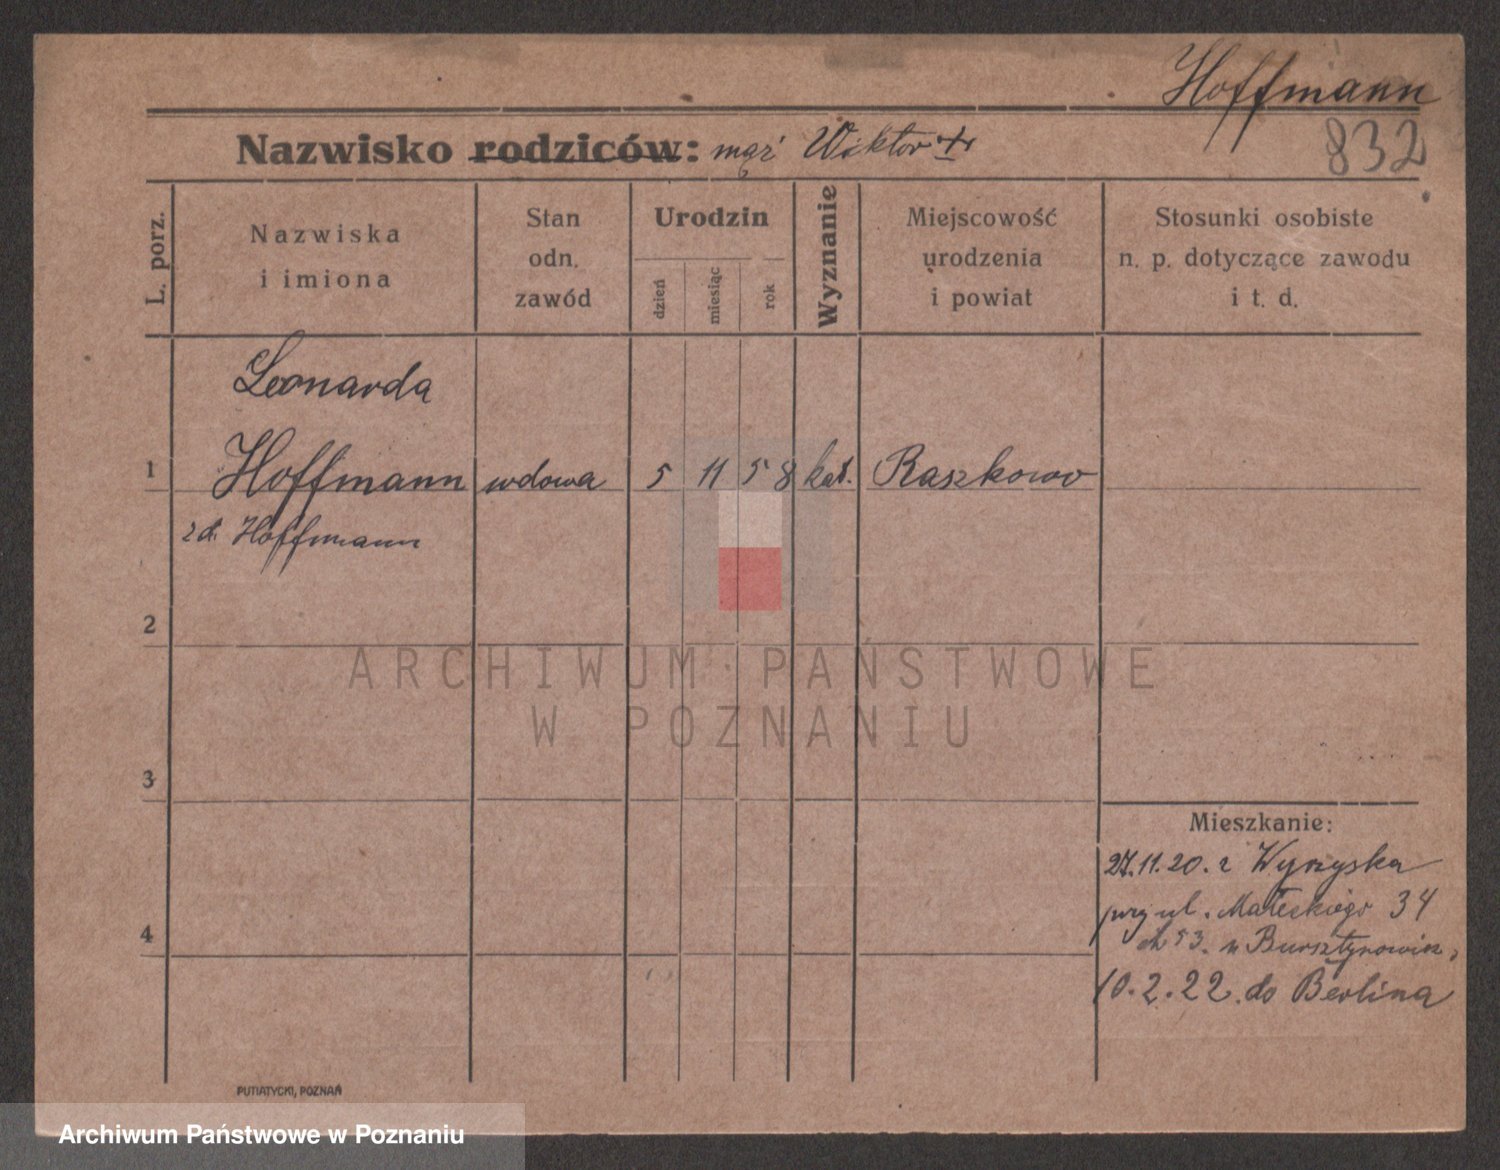 Hoffmann
832
Nazwisko rodziców: mąż Wiktor +
L. porz.
Nazwiska
i imiona
Stan
odn.
zawód
Urodzin
dzień
miesiąc
rok
Wyznanie
Miejscowość
urodzenia
i powiat
Stosunki osobiste
n. p. dotyczące zawodu
i t. d.
Leonarda
1 Hoffmann wdowa 5 11 58 kat. Raszkowo
Hoffmann
2
3
4
ARCHIWUM PAŃSTWOWE
W POZNANIU
Mieszkanie:
27.11.20. z Wyrzyska
przy ul. Małeckiego 34
10.2.22. do Berlina
PUTIATYCKI, POZNAŃ
Archiwum Państwowe w Poznaniu